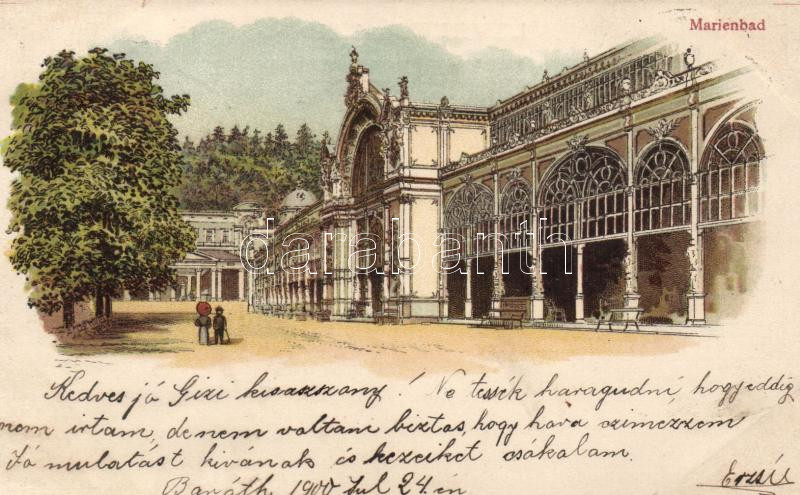 Marienbad
darabanth
Kedves jó Gizi kisasszony! Ne tessék haragudni, hogy eddig
nem irtam, de nem voltam biztos, hogy hova czimezzem
Jó mulatást kivánok és kezeikét csókalam.
Baráth 1900 Jul 24.en
Erzsi